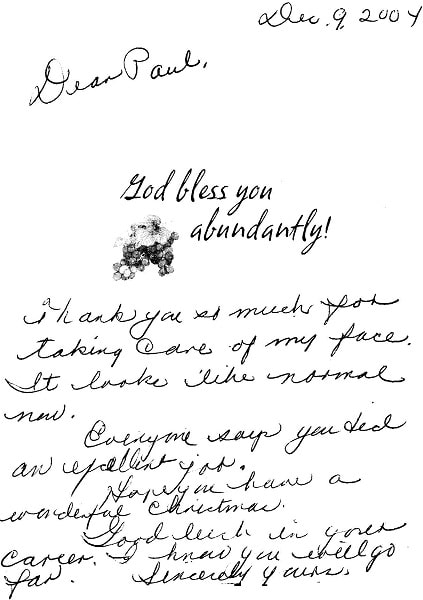 Dec. 9, 2004
Dear Paul,
God bless you
abundantly!
Thank you so much for
taking care of my face.
It looks like normal
now.
Everyone says you did
an excellent job.
Hope you have a
wonderful Christmas.
Good luck in your
career. I know you will go
far. Sincerely yours,